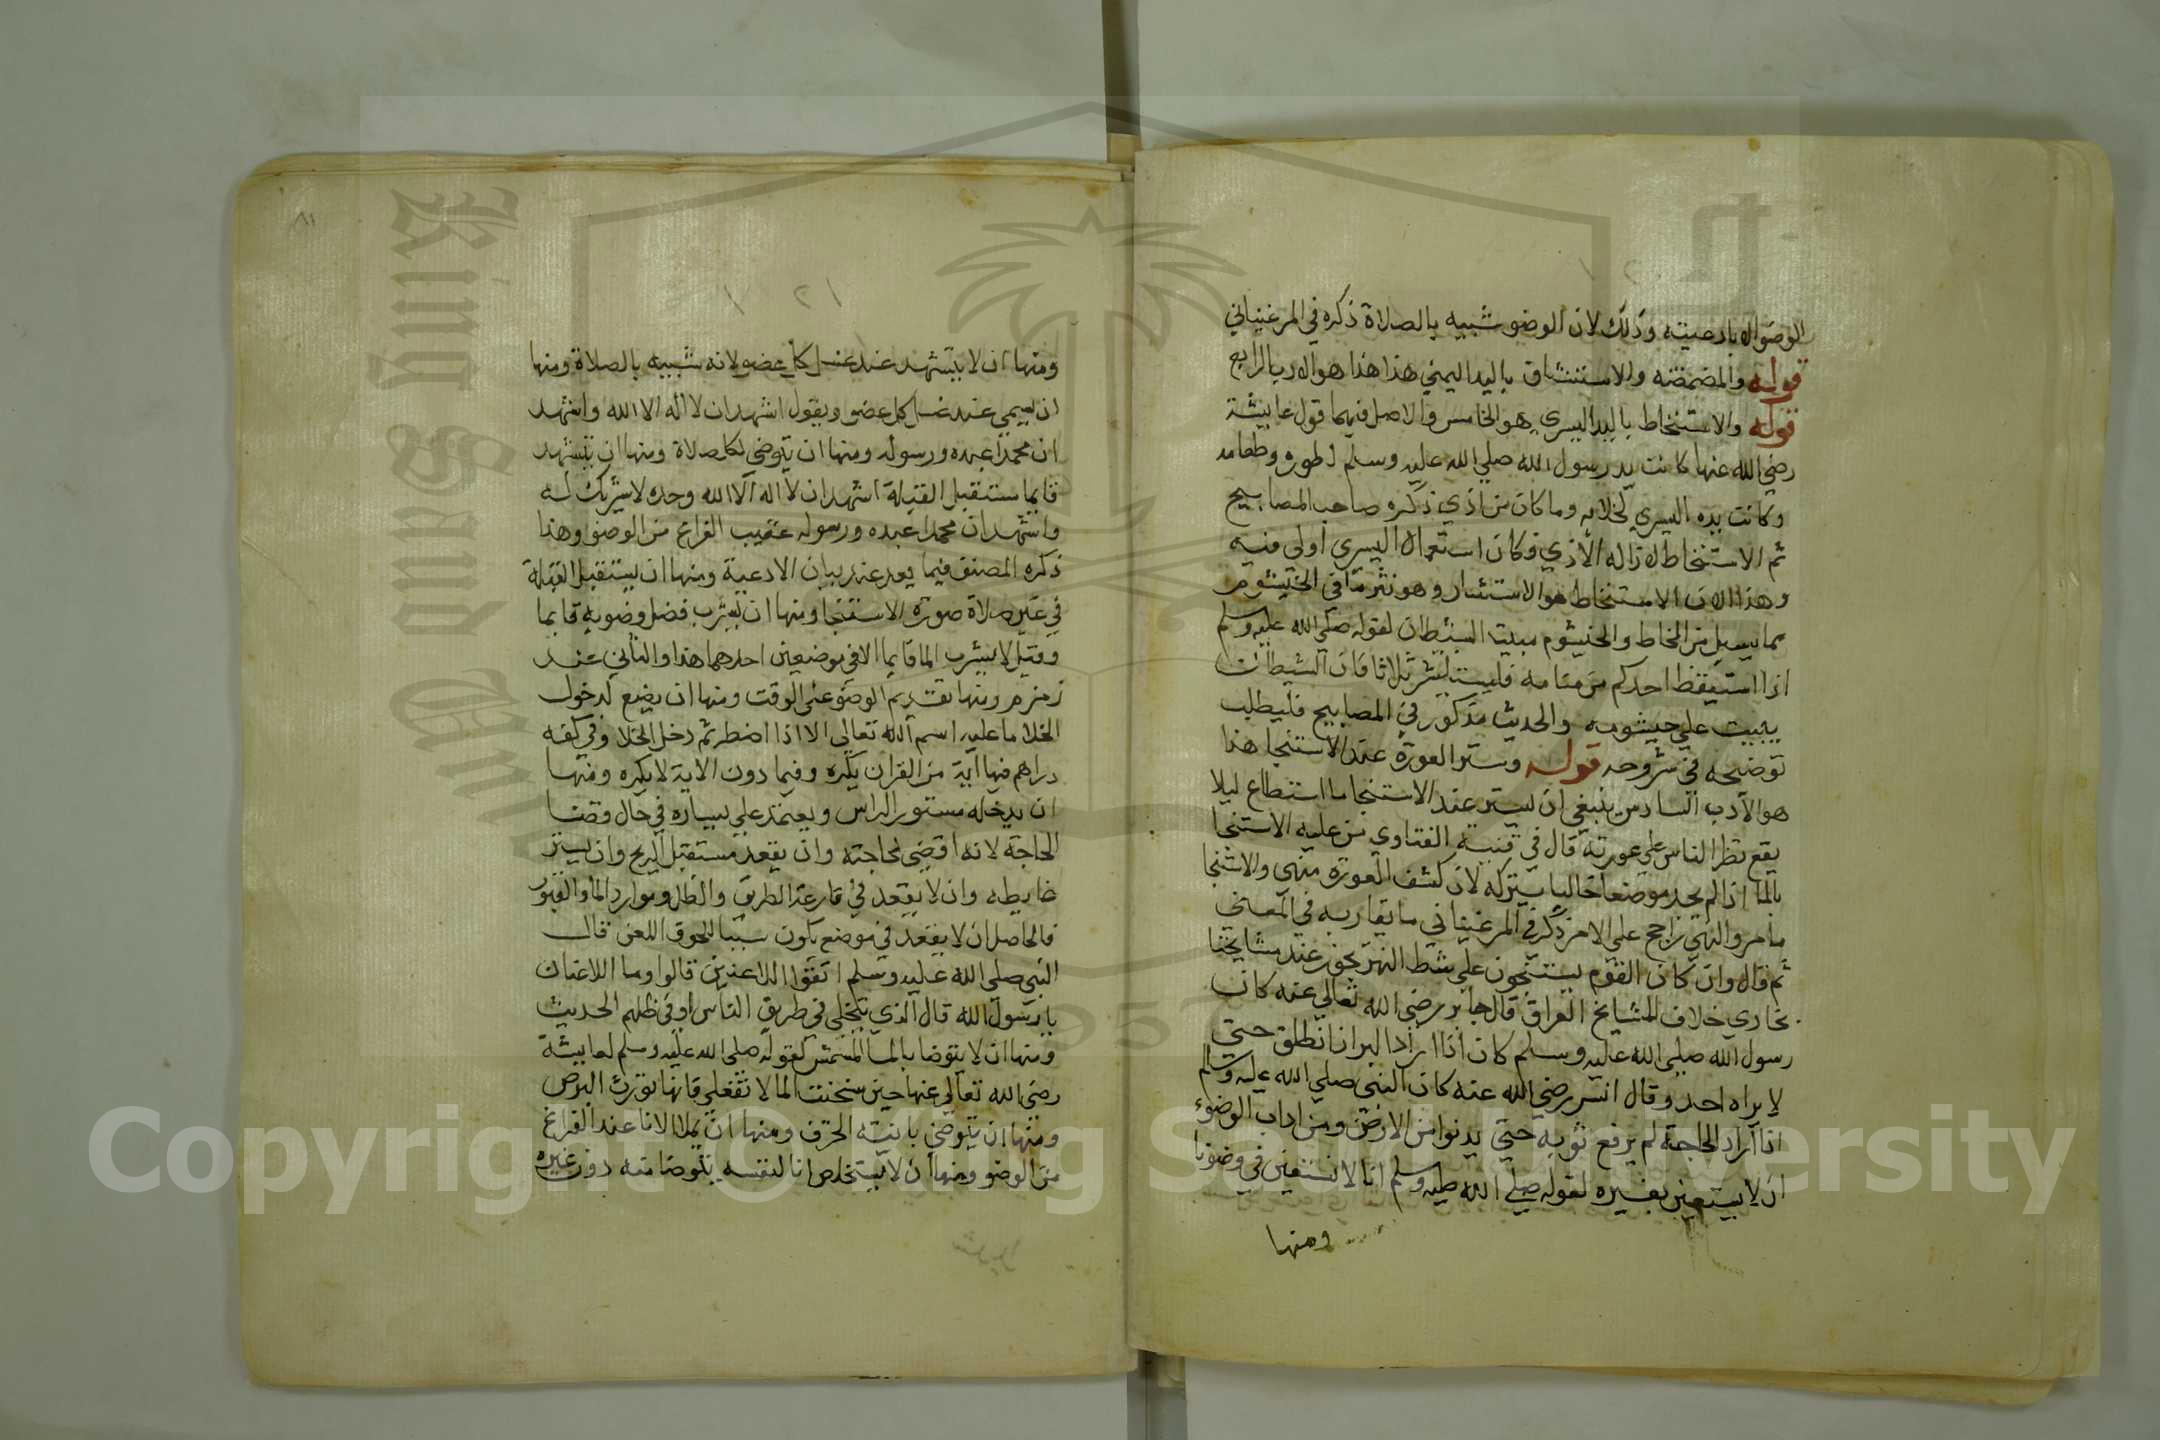 الوضو الا بادعيته وذلك لان الوضو شبيه بالصلاة ذكره في المرغيناني
قوله والمضمضة والاستنشاق باليد اليمني هذا هذا هو الادب الرابع
قوله والاستنخاط باليد اليسري هو الخامس والاصل فيهما قول عايشة
رضي الله عنها كانت يد رسول الله صلي الله عليه وسلم لطهوره وطعامه
وكانت يده اليسري لخلايه وما كان من اذي ذكره صاحب المصابيح
ثم الاستنخاط لازالة الاذي فكان استعمال اليسري اولي فيه
وهذا لان الاستنخاط هو الاستنثار وهو نثر ما في الخيشوم
مما يسيل من المخاط والخيشوم مبيت الشيطان لقوله صلي الله عليه وسلم
اذا استيقظ احدكم من منامه فليستنثر ثلاثا فان الشيطان
يبيت علي خيشومه والحديث مذكور في المصابيح فليطلب
توضيحه في شروحه قوله وستر العورة عند الاستنجا هذا
هو الادب السادس ينبغي ان يستتر عند الاستنجا ما استطاع ليلا
يقع نظر الناس علي عورته قال في قنية الفتاوي من عليه الاستنجا
بالما اذا لم يجد موضعا خاليا يتركه لان كشف العورة منهي والاستنجا
مامر والنهي راجح علي الامر ذكر في المرغيناني ما يقاربه في المعني
ثم قال وان كان القوم يستنجون علي شط النهر يجوز عند مشايخنا
بخاري خلاف لمشايخ العراق قال جابر رضي الله تعالي عنه كان
رسول الله صلي الله عليه وسلم كان اذا اراد البراز انطلق حتي
لا يراه احد وقال انس رضي الله عنه كان النبي صلي الله عليه وسلم
اذا اراد الحاجة لم يرفع ثوبه حتي يدنوا من الارض ومن اداب الوضوء
ان لا يستعين بغيره لقوله صلي الله عليه وسلم انا لا نستعين في وضونا
ومنها
ومنها ان لا يتشهد عند غسل كل عضو لانه شبيه بالصلاة ومنها
ان يسمي عند غسل كل عضو ويقول اشهد ان لا اله الا الله واشهد
ان محمدا عبده ورسوله ومنها ان يتوضي لكل صلاة ومنها ان يتشهد
قايما مستقبل القبلة اشهد ان لا اله الا الله وحده لا شريك له
واشهد ان محمدا عبده ورسوله عقيب الفراغ من الوضو وهذا
ذكره المصنف فيما بعد عند بيان الادعية ومنها ان يستقبل القبلة
في غير صلاة صورة الاستنجا ومنها ان يشرب فضل وضويه قايما
وقيل لا يشرب الما قايما الا في موضعين احدهما هذا والثاني عند
زمزم ومنها تقديم الوضو علي الوقت ومنها ان يضع لدخول
الخلا ما عليه اسم الله تعالي الا اذا اضطر ثم دخل الخلا وفي كفه
دراهم فيها آية من القران يكره وفيما دون الاية لا يكره ومنها
ان يدخله مستور الراس ويعتمد علي يساره في حال قضا
الحاجة لانه اقضي لحاجته وان يقعد مستقبل الريح وان يستر
غايطه وان لا يقعد في قارعة الطريق والظل وموارد الما والقبور
فالحاصل ان لا يقعد في موضع يكون سببا للحوق اللعن قال
النبي صلي الله عليه وسلم اتقوا اللاعنين قالوا وما اللاعنان
يا رسول الله قال الذي يتخلي في طريق الناس او في ظلهم الحديث
ومنها ان لا يتوضا بالما المشمس لقوله صلي الله عليه وسلم لعايشة
رضي الله تعالي عنها حين سخنت الما لا تفعلي فانها تورث البرص
ومنها ان يتوضي بانية الخزف ومنها ان يملا الانا عند الفراغ
من الوضو ومنها ان لا يستخلص انا لنفسه يتوضا منه دون غيره
Copyright © King Saud University
King Saud University
1957